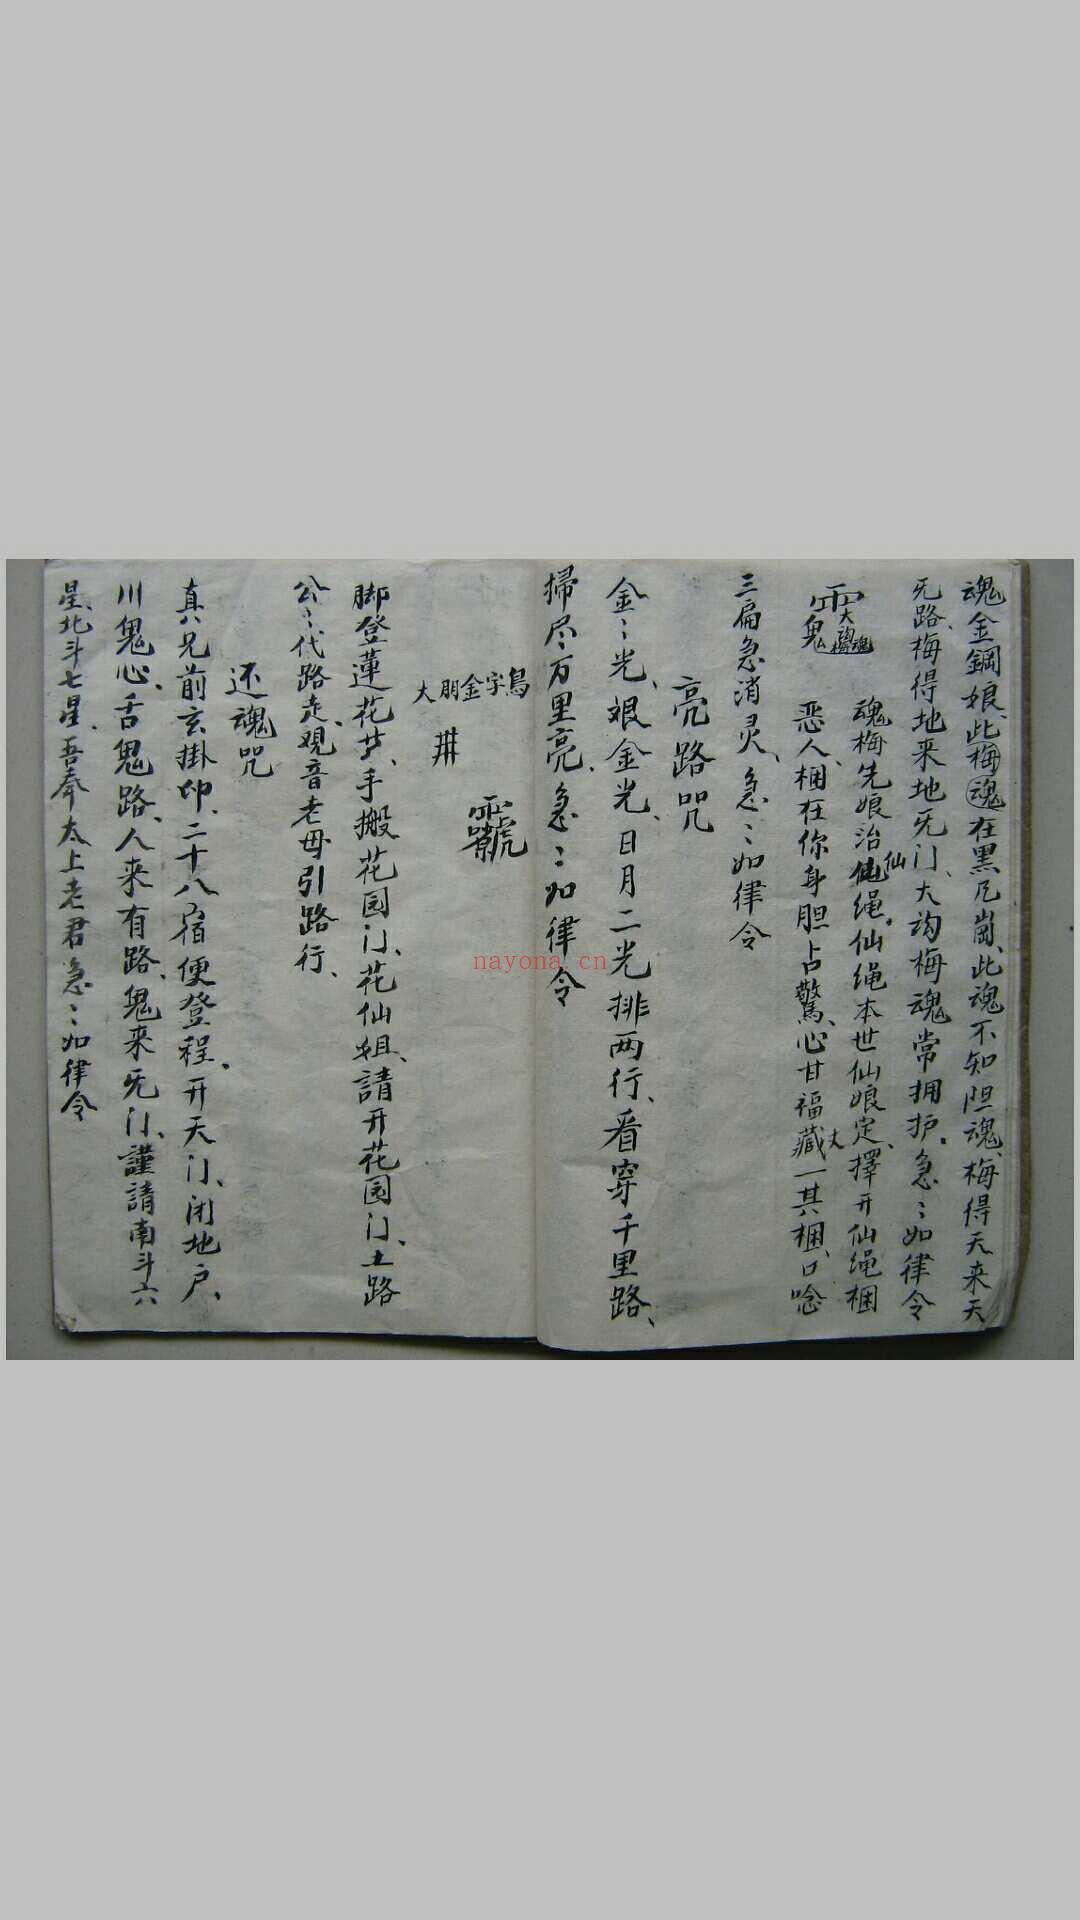 魂金鋼娘、此梅魂在黑凡崗、此魂不知阻魂、梅得天来天
旡路、梅得地来地旡门、大沟梅魂常拥护。急〻如律令
魂梅先娘治仙绳。仙绳本世仙娘定、擇开仙绳梱
恶人、梱在你身胆占驚、心甘福藏大一其梱、口唸
三扁急消灵、急〻如律令
亮路咒
金〻光、娘金光、日月二光排两行、看穿千里路、
掃尽万里亮、急〻如律令
大朋金字鳥
脚登蓮花芽、手搬花园门、花仙姐、請开花园门、土路
公〻代路走、观音老母引路行、
还魂咒
真八兄前玄掛印、二十八宿便登程、开天门、闭地户、
川鬼心、舌鬼路、人来有路、鬼来旡门、謹請南斗六
星、北斗七星、吾奉太上老君急〻如律令
nayona.cn